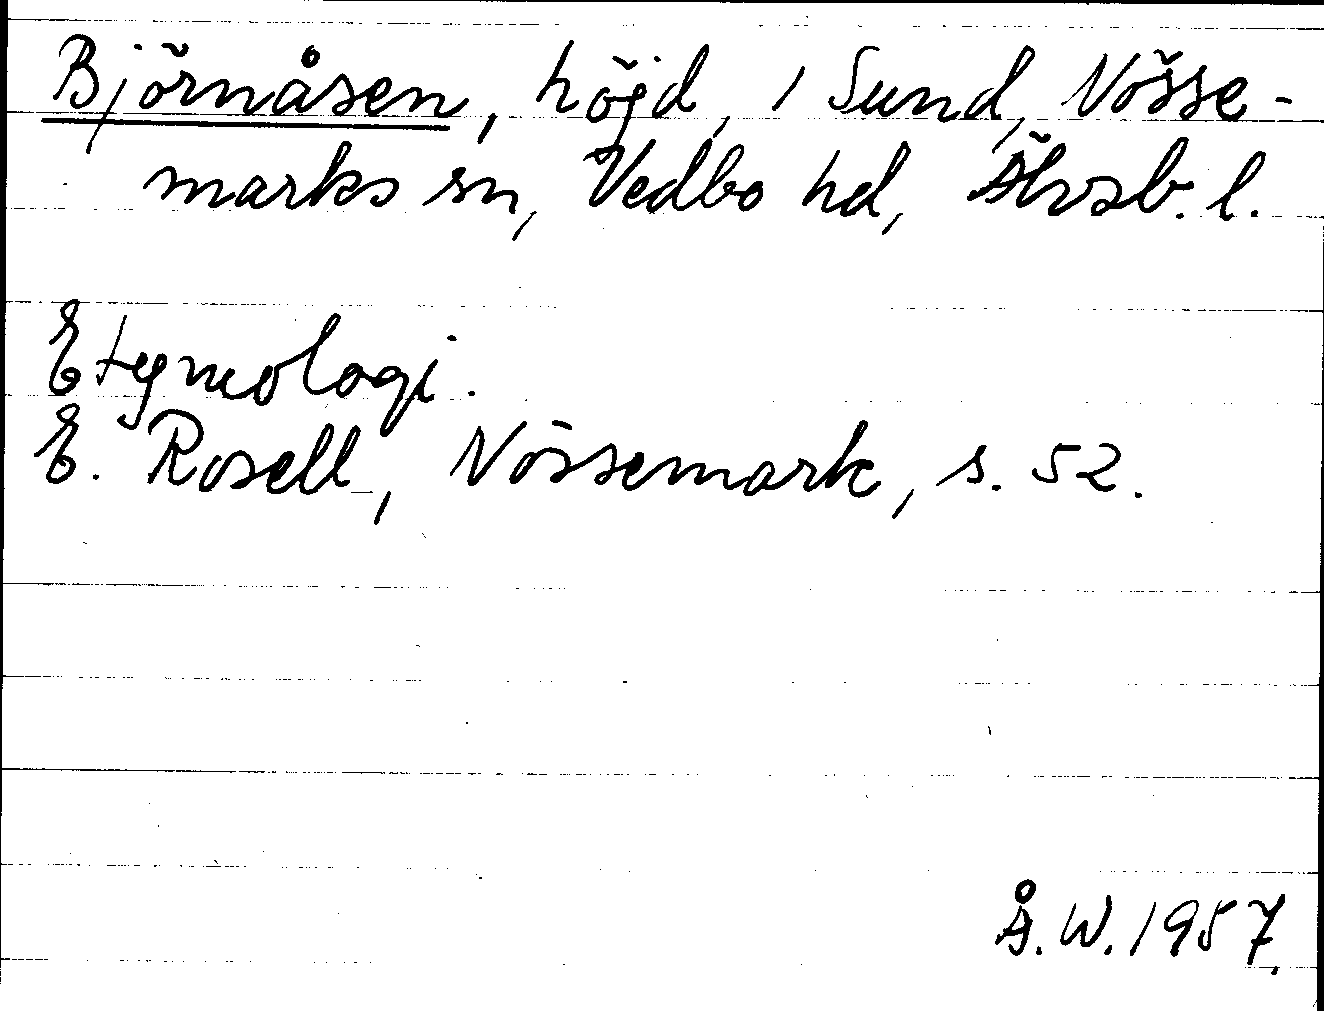 Björnåsen, höjd, 1 Sund, Nösse-
marks sn, Vedbo hd, Älvsb. l.
Etymologi.
E. Rosell, Nössemark, s. 52.
Å. W. 1957.